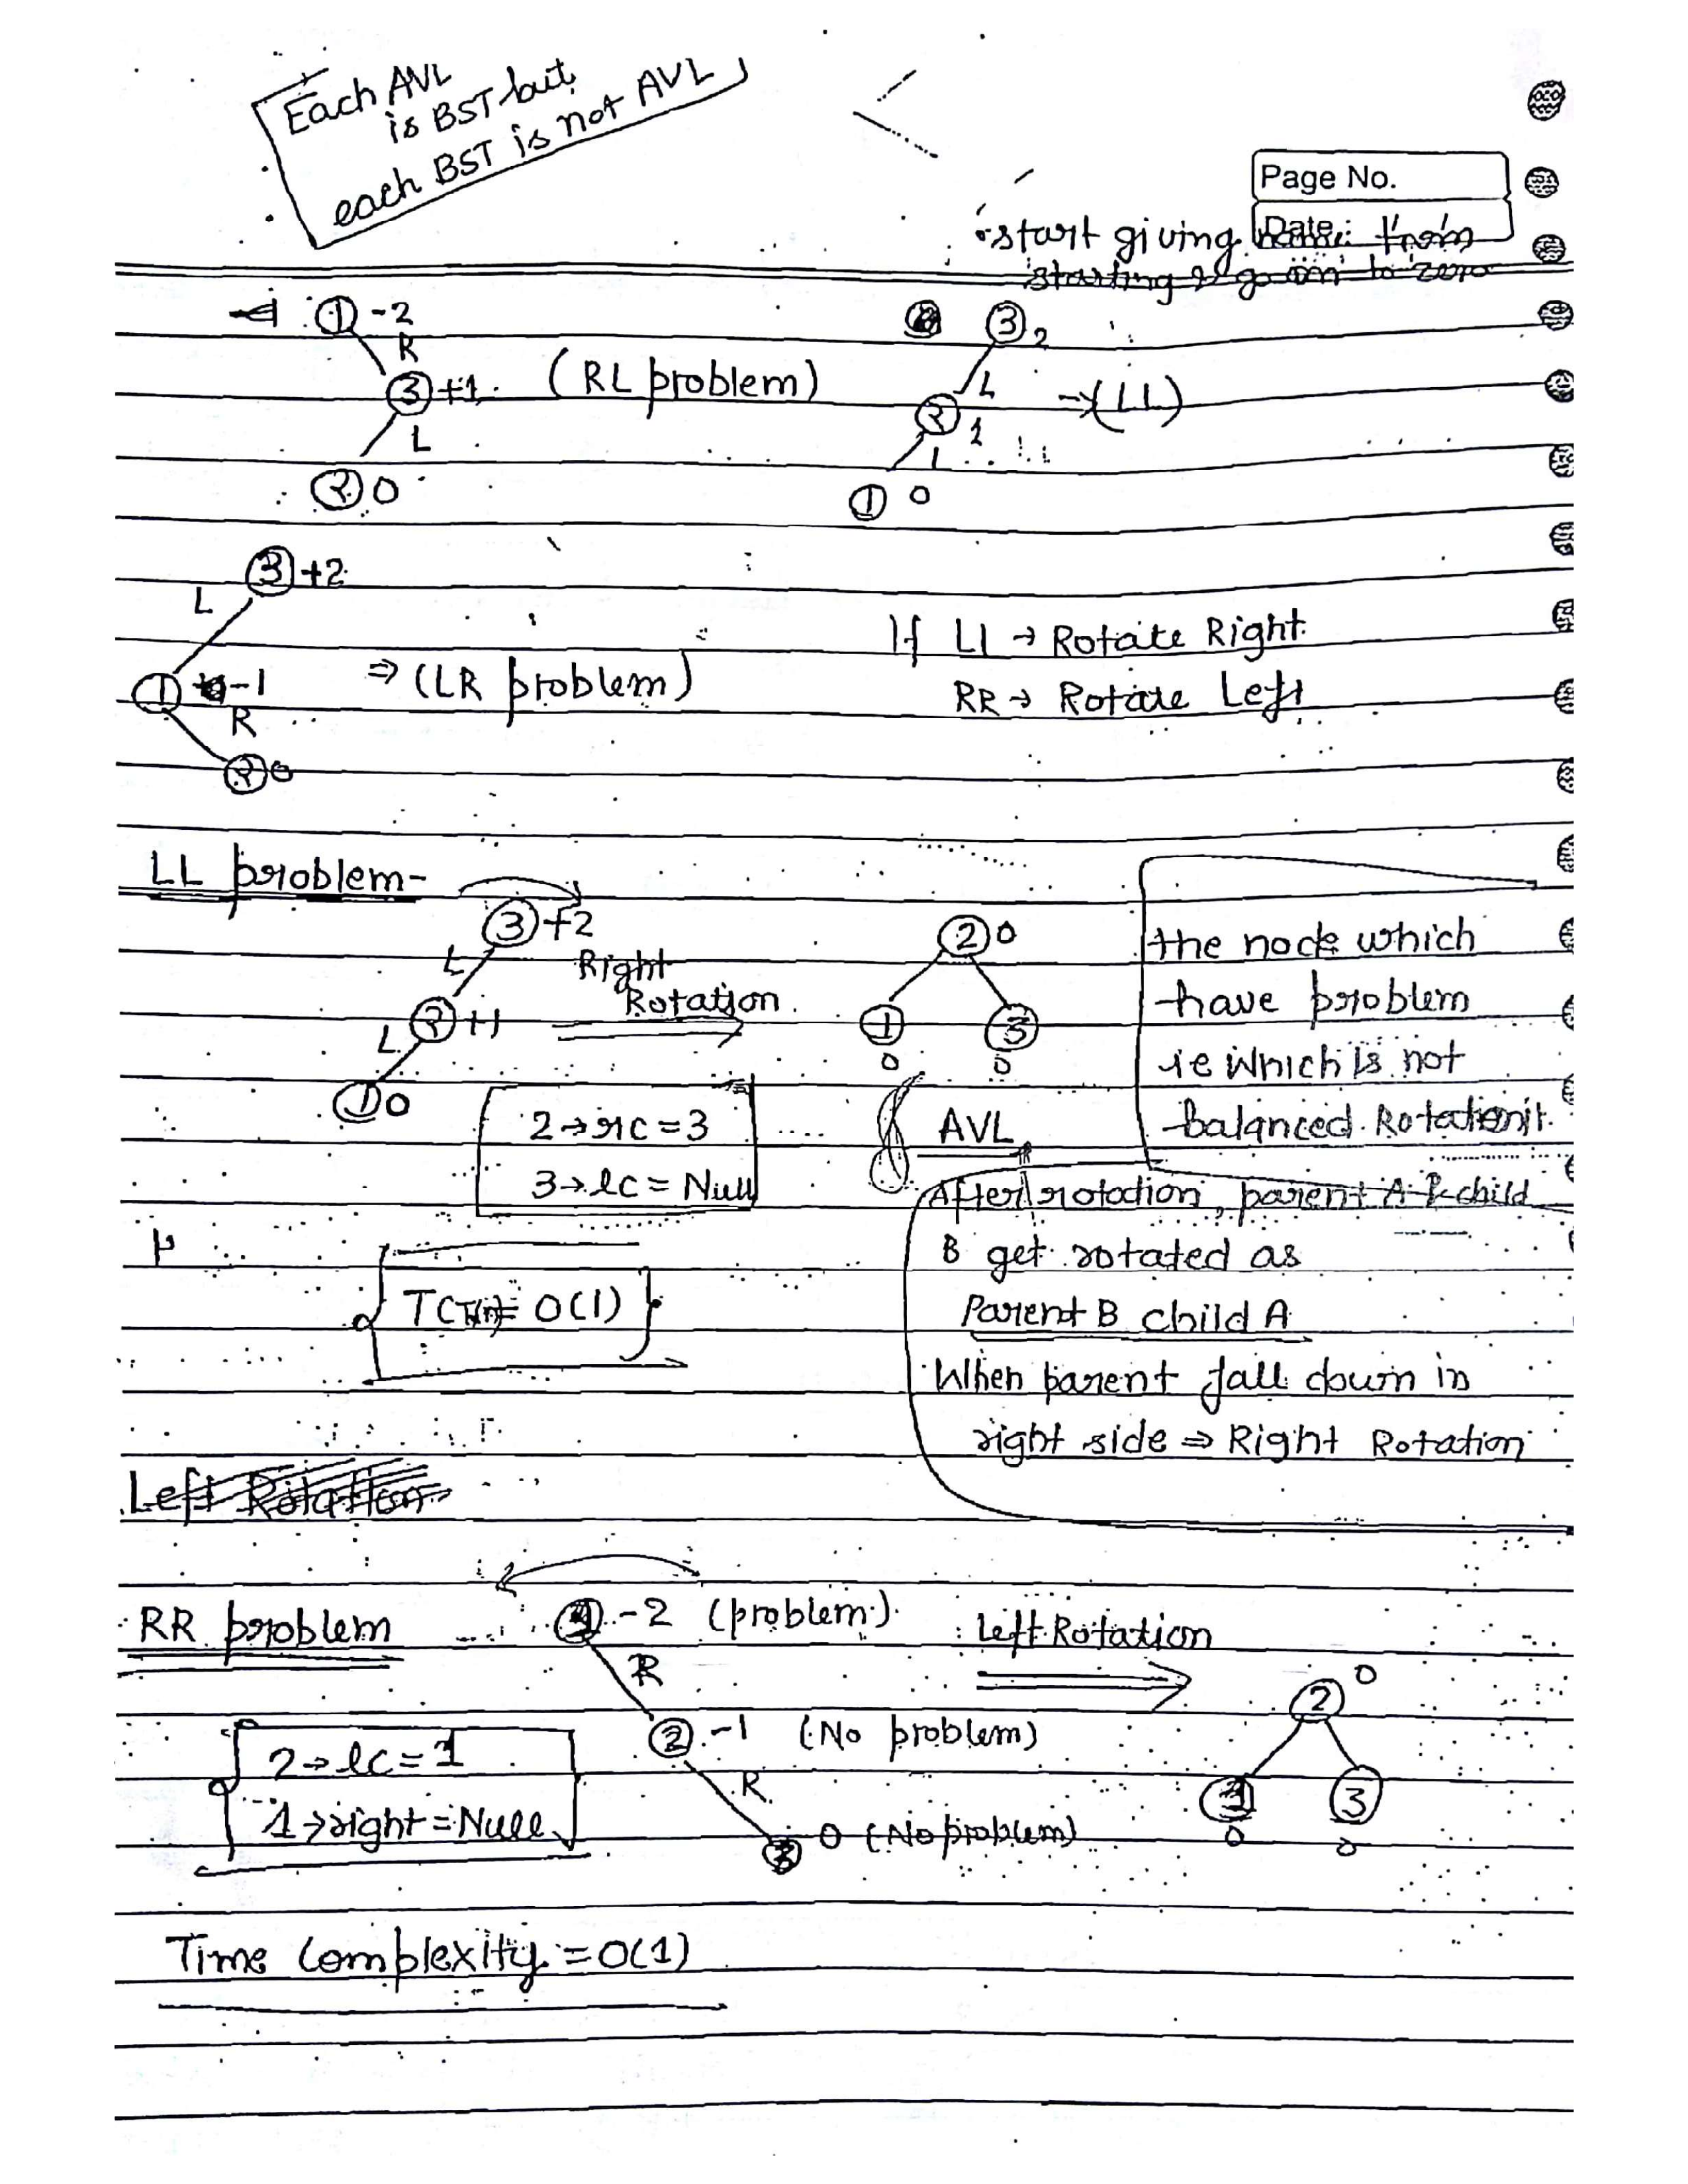 Each AVL
is BST but
each BST is not AVL
Page No.
Date:
start giving name from
starting & go on to zero
1 -2
R
3 +1 (RL problem)
L
2 0
3 2
L
2 1 → (LL)
L
1 0
3 +2
L
1 -1 ⇒ (LR problem)
R
2 0
If LL → Rotate Right
RR → Rotate Left
LL problem-
3 +2
L
Right
Rotation
2 +1
L
1 0
2 0
1 3
0 0
AVL
2→rc = 3
3→lc = Null
the node which
have problem
ie which is not
balanced. Rotation it.
After rotation, parent A & child
B get rotated as
Parent B child A
When parent fall down in
right side ⇒ Right Rotation
= O(1)
Left Rotation
RR problem
1 -2 (problem)
R
2 -1 (No problem)
R
3 0 (No problem)
Left Rotation
2 0
1 3
0 0
2→lc = 1
1→right = Null
Time Complexity = O(1)